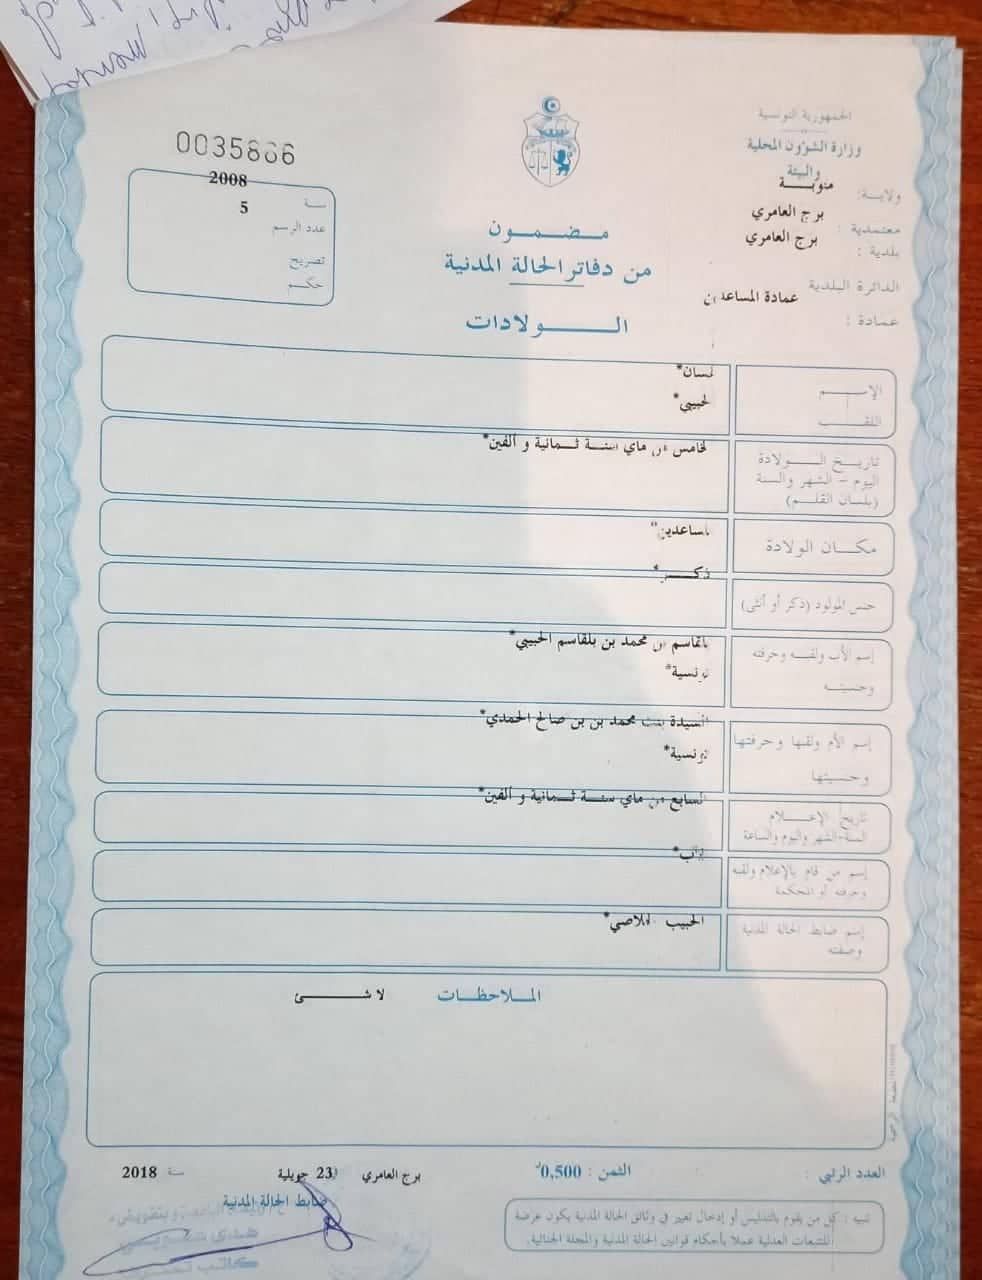 الجمهورية التونسية
وزارة الشؤون المحلية
والبيئة
ولاية: منوبة
معتمدية : برج العامري
بلدية : برج العامري
الدائرة البلدية
عمادة : عمادة المساعدين
0035866
سنة 2008
عدد الرسم 5
تصريح
حكم
مضمون
من دفاتر الحالة المدنية
الولادات
الإسم
اللقب
لحبيبي*
تاريخ الولادة
اليوم - الشهر والسنة
(بلسان القلم)
لخامس من ماي سنة ثمانية و ألفين*
مكان الولادة
لمساعدين*
ذكر*
جنس المولود (ذكر أو أنثى)
إسم الأب ولقبه وحرفته
وجنسيته
بلقاسم بن محمد بن بلقاسم الحبيبي*
تونسية*
إسم الأم ولقبها وحرفتها
وجنسيتها
السيدة بنت محمد بن بن صالح الحمدي*
تونسية*
تاريخ الإعلام
السنة-الشهر واليوم والساعة
السابع من ماي سنة ثمانية و ألفين*
إسم من قام بالإعلام ولقبه
وحرفته أو المحكمة
إسم ضابط الحالة المدنية
وصفته
الحبيب
الملاحظات لا شئ
العدد الرتبي :
الثمن : 0,500د
برج العامري 23 جويلية سنة 2018
ضابط الحالة المدنية
تنبيه : كل من يقوم بالتدليس أو إدخال تغيير في وثائق الحالة المدنية يكون عرضة
للتتبعات العدلية عملا بأحكام قوانين الحالة المدنية والمجلة الجنائية.